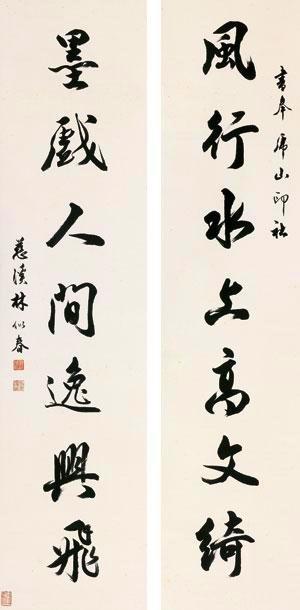 書奉山印社
風行水上高文綺
墨戲人間逸興飛
慈溪林似春